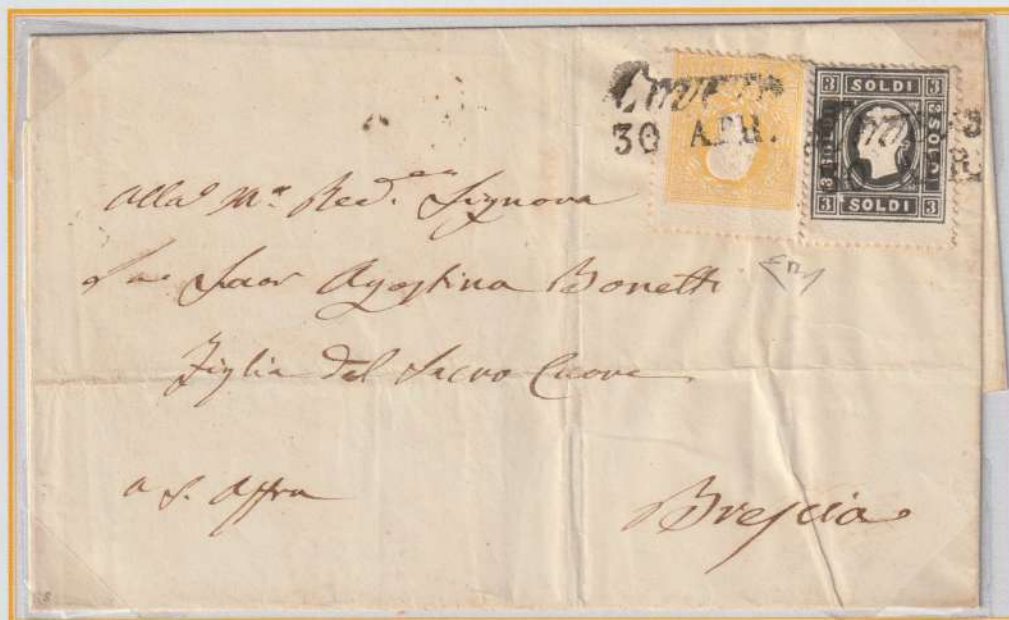 Lovere
30 APR.
3 SOLDI 3
SOLDI
SOLDI
3 SOLDI 3
Alla Mª. Red.ª Signora
Suor Agostina Bonetti
Figlia del Sacro Cuore
a S. Affra
Brescia